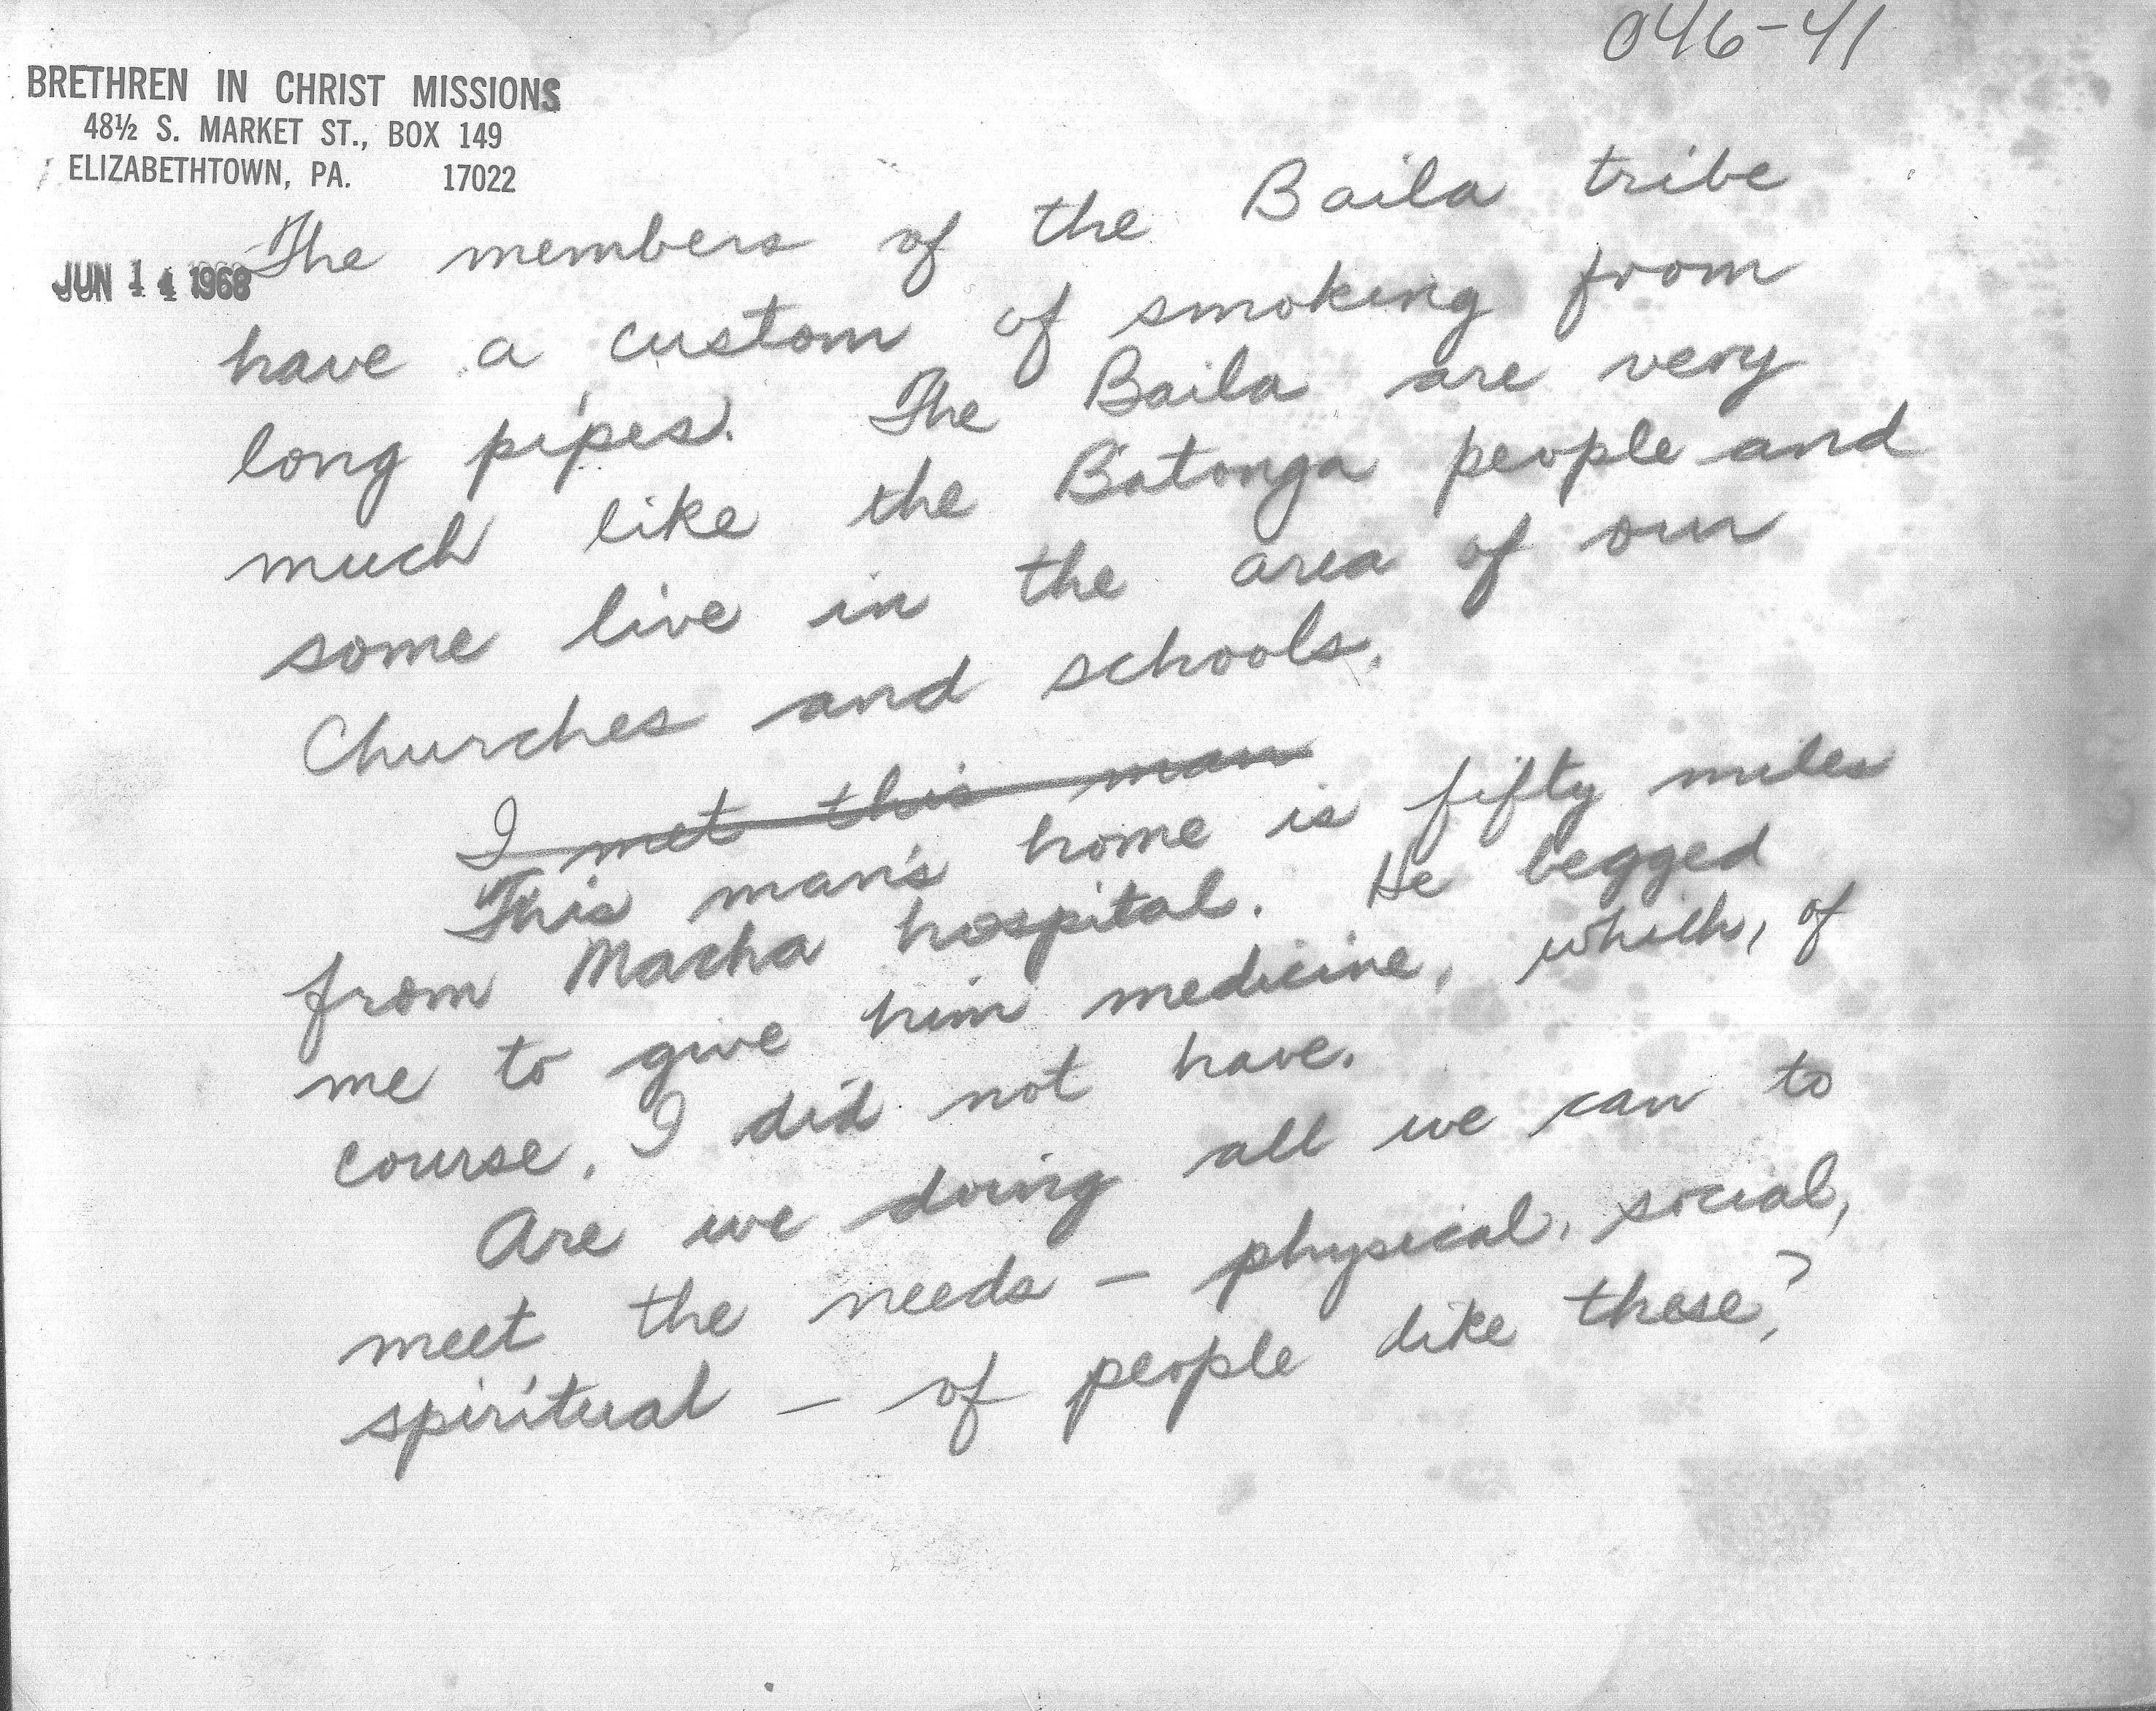 046-41
BRETHREN IN CHRIST MISSIONS
48½ S. MARKET ST., BOX 149
ELIZABETHTOWN, PA. 17022
JUN 14 1968
The members of the Baila tribe
have a custom of smoking from
long pipes. The Baila are very
much like the Batonga people and
some live in the area of our
Churches and schools.
I met this man
This man's home is fifty miles
from Macha hospital. He begged
me to give him medicine, which, of
course, I did not have.
Are we doing all we can to
meet the needs — physical, social,
spiritual — of people like these?